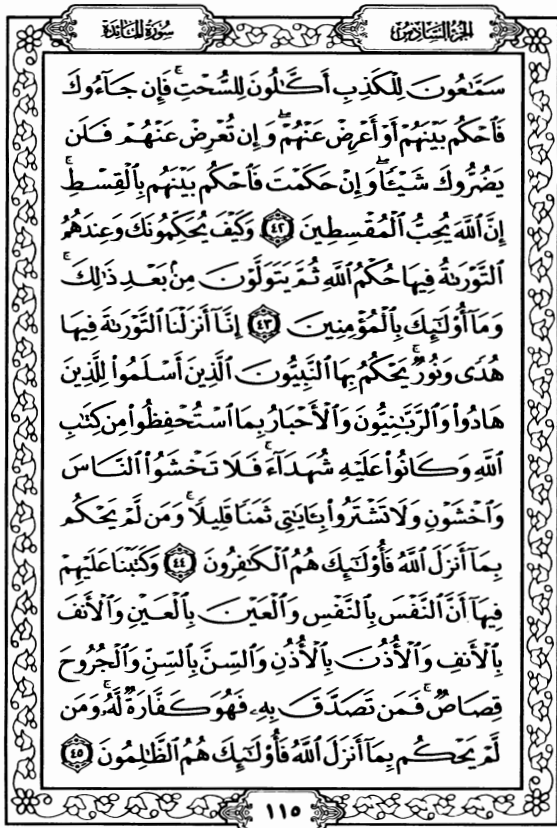 الجزء السادس
سورة المائدة
سَمَّٰعُونَ لِلْكَذِبِ أَكَّٰلُونَ لِلسُّحْتِ ۚ فَإِن جَآءُوكَ
فَٱحْكُم بَيْنَهُمْ أَوْ أَعْرِضْ عَنْهُمْ ۖ وَإِن تُعْرِضْ عَنْهُمْ فَلَن
يَضُرُّوكَ شَيْـًٔا ۖ وَإِنْ حَكَمْتَ فَٱحْكُم بَيْنَهُم بِٱلْقِسْطِ ۚ
إِنَّ ٱللَّهَ يُحِبُّ ٱلْمُقْسِطِينَ ﴿٤٢﴾ وَكَيْفَ يُحَكِّمُونَكَ وَعِندَهُمُ
ٱلتَّوْرَىٰةُ فِيهَا حُكْمُ ٱللَّهِ ثُمَّ يَتَوَلَّوْنَ مِنۢ بَعْدِ ذَٰلِكَ ۚ
وَمَآ أُو۟لَٰٓئِكَ بِٱلْمُؤْمِنِينَ ﴿٤٣﴾ إِنَّآ أَنزَلْنَا ٱلتَّوْرَىٰةَ فِيهَا
هُدًى وَنُورٌ ۚ يَحْكُمُ بِهَا ٱلنَّبِيُّونَ ٱلَّذِينَ أَسْلَمُوا۟ لِلَّذِينَ
هَادُوا۟ وَٱلرَّبَّٰنِيُّونَ وَٱلْأَحْبَارُ بِمَا ٱسْتُحْفِظُوا۟ مِن كِتَٰبِ
ٱللَّهِ وَكَانُوا۟ عَلَيْهِ شُهَدَآءَ ۚ فَلَا تَخْشَوُا۟ ٱلنَّاسَ
وَٱخْشَوْنِ وَلَا تَشْتَرُوا۟ بِـَٔايَٰتِى ثَمَنًا قَلِيلًا ۚ وَمَن لَّمْ يَحْكُم
بِمَآ أَنزَلَ ٱللَّهُ فَأُو۟لَٰٓئِكَ هُمُ ٱلْكَٰفِرُونَ ﴿٤٤﴾ وَكَتَبْنَا عَلَيْهِمْ
فِيهَآ أَنَّ ٱلنَّفْسَ بِٱلنَّفْسِ وَٱلْعَيْنَ بِٱلْعَيْنِ وَٱلْأَنفَ
بِٱلْأَنفِ وَٱلْأُذُنَ بِٱلْأُذُنِ وَٱلسِّنَّ بِٱلسِّنِّ وَٱلْجُرُوحَ
قِصَاصٌ ۚ فَمَن تَصَدَّقَ بِهِۦ فَهُوَ كَفَّارَةٌ لَّهُۥ ۚ وَمَن
لَّمْ يَحْكُم بِمَآ أَنزَلَ ٱللَّهُ فَأُو۟لَٰٓئِكَ هُمُ ٱلظَّٰلِمُونَ ﴿٤٥﴾
١١٥